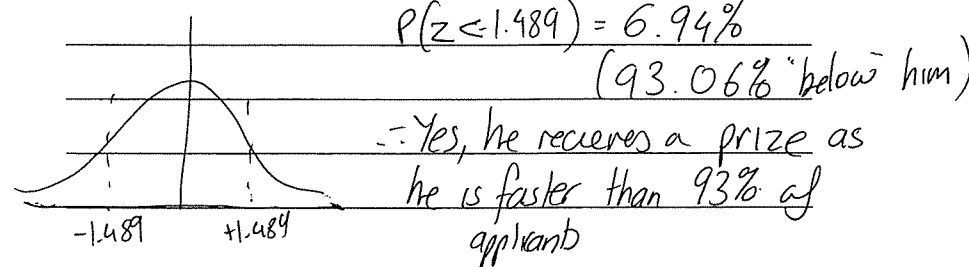 P(z<-1.489) = 6.94%
(93.06% "below" him)
∴ Yes, he recieves a prize as
he is faster than 93% of
applicants
-1.489 +1.489